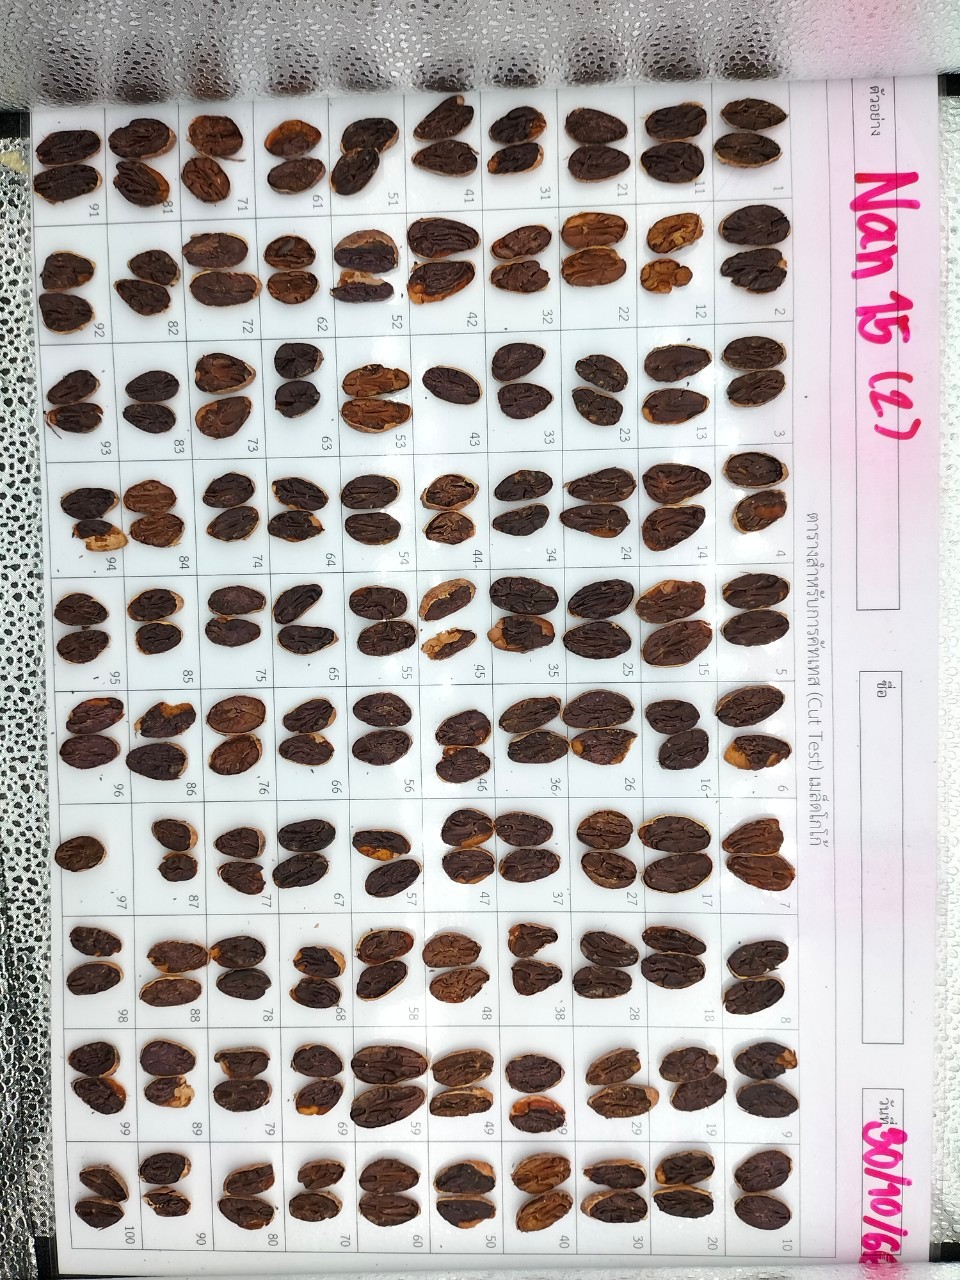 ตัวอย่าง Nan 15 (2) ชื่อ วันที่ 30/10/6
ตารางสำหรับการคัทเทส (Cut Test) เมล็ดโกโก้
1 2 3 4 5 6 7 8 9 10
11 12 13 14 15 16 17 18 19 20
21 22 23 24 25 26 27 28 29 30
31 32 33 34 35 36 37 38 39 40
41 42 43 44 45 46 47 48 49 50
51 52 53 54 55 56 57 58 59 60
61 62 63 64 65 66 67 68 69 70
71 72 73 74 75 76 77 78 79 80
81 82 83 84 85 86 87 88 89 90
91 92 93 94 95 96 97 98 99 100